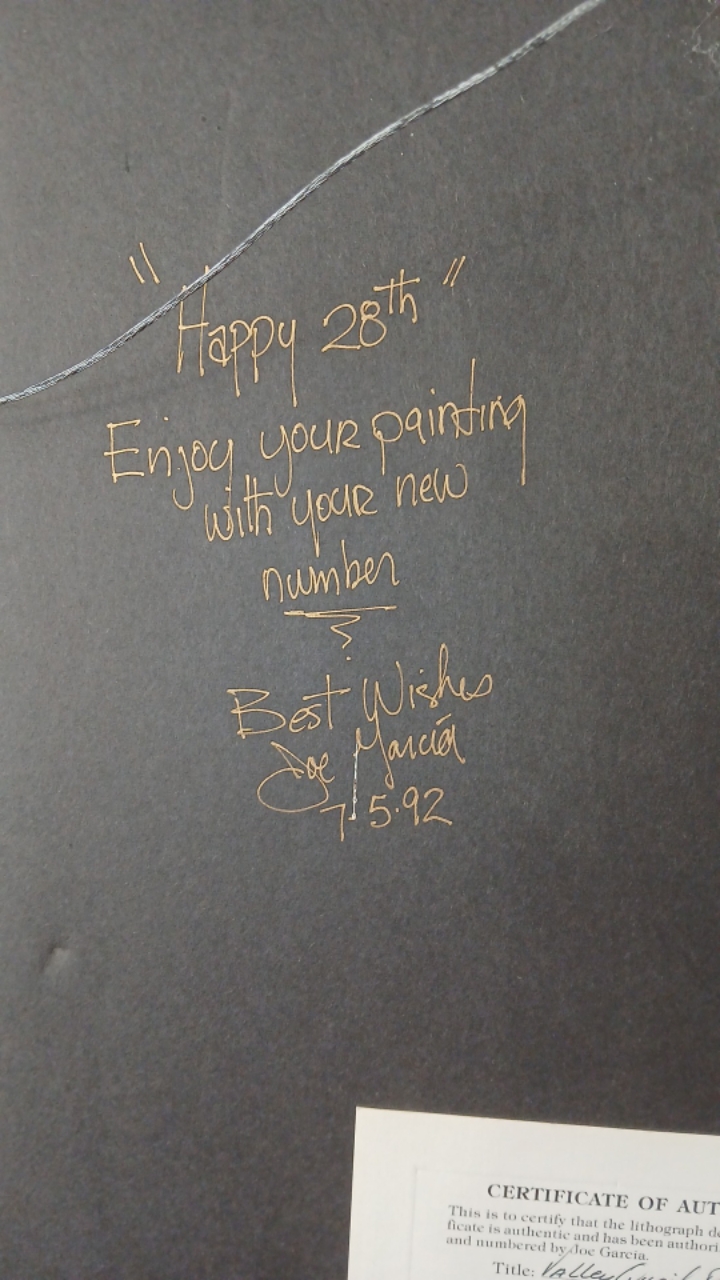 "Happy 28th"
Enjoy your painting
with your new
number
Best Wishes
Joe Garcia
7·5·92
CERTIFICATE OF AUT
This is to certify that the lithograph de
ficate is authentic and has been authori
and numbered by Joe Garcia.
Title: Valley